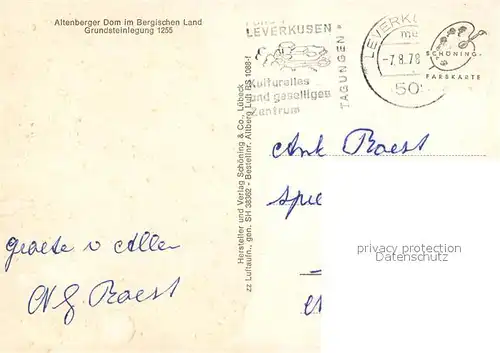 Altenberger Dom im Bergischen Land
Grundsteinlegung 1255
LEVERKUSEN
Kulturelles
und geselliges
Zentrum
TAGUNGEN
LEVERKU
-7.8.78
SCHÖNING
FARBKARTE
Hersteller und Verlag Schöning & Co., Lübeck
zz Luftaufn., gen. SH 38362 - Bestellnr. Altberg Luft BS 1088-f
Ant Roest
privacy protection
Datenschutz
groete v Allen
Roest